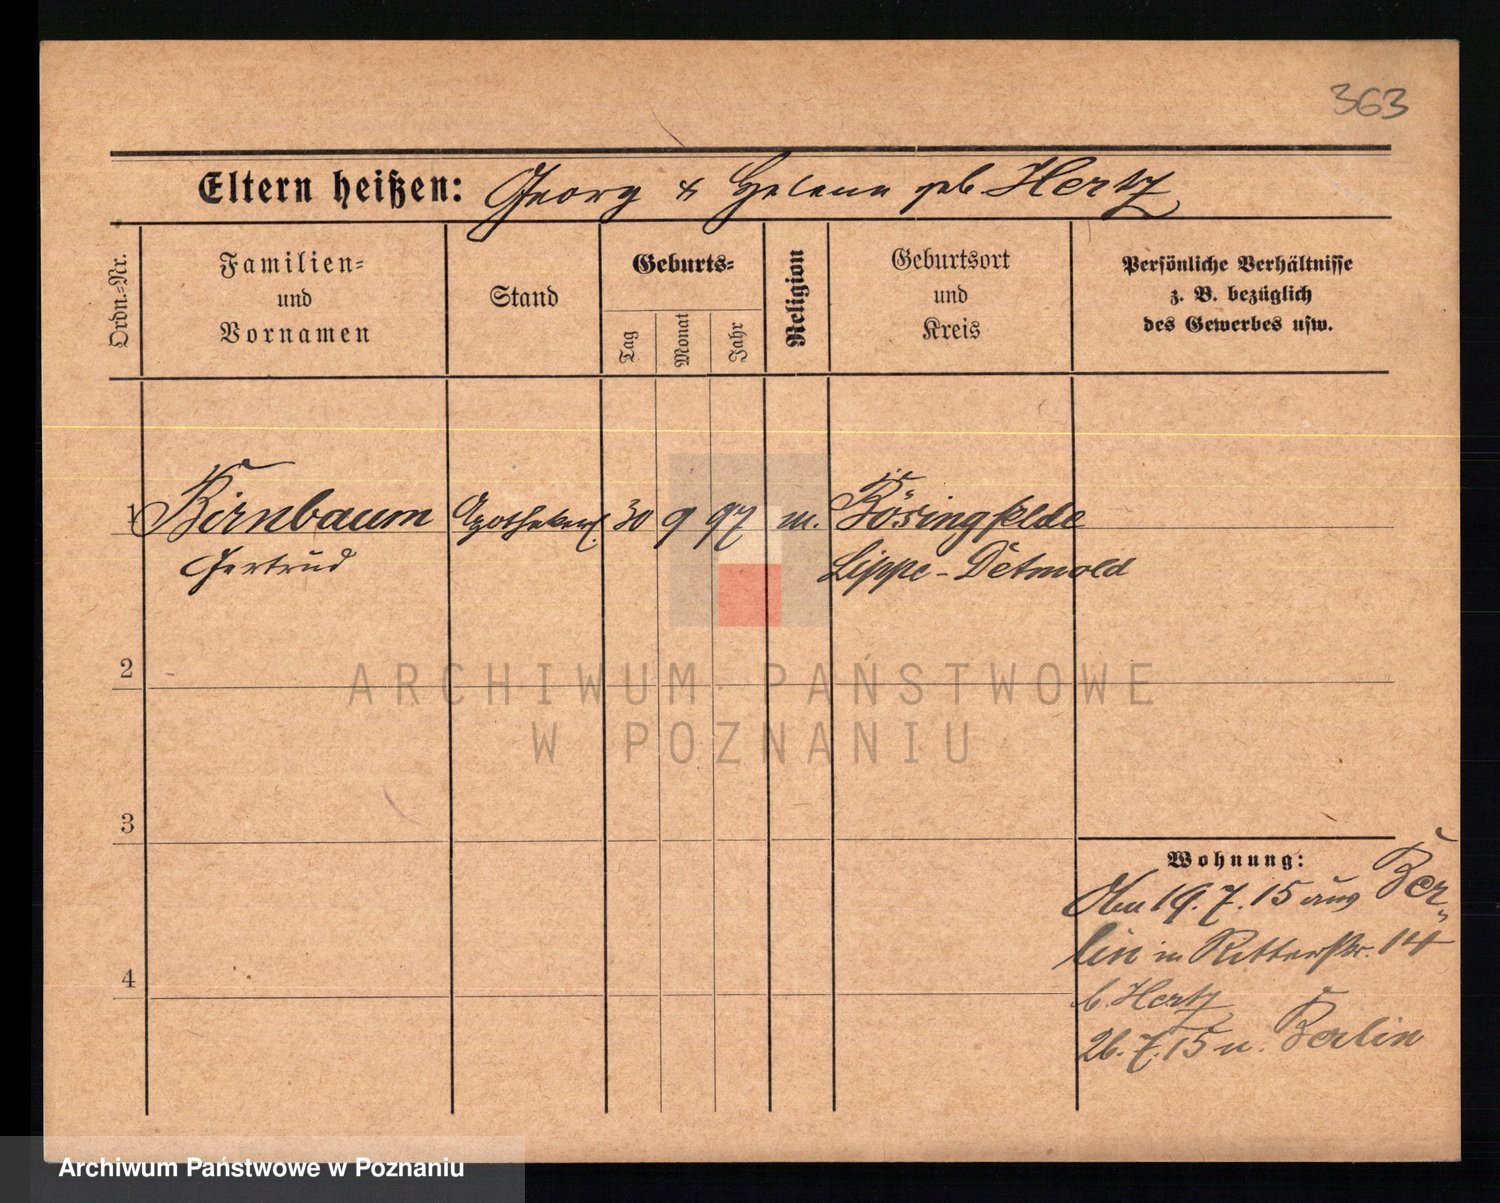 363
Eltern heißen: Georg & Helene geb. Hertz
Ordn.-Nr.
Familien-
und
Vornamen
Stand
Geburts-
Tag
Monat
Jahr
Religion
Geburtsort
und
Kreis
Persönliche Verhältnisse
z. B. bezüglich
des Gewerbes usw.
1 Birnbaum 30 9 97 m. Bösingfelde
Gertrud Lippe-Detmold
2
3
4
Wohnung:
19.7.15 aus Ber-
lin in Ritterstr. 14
b. Hertz
26.7.15 n. Berlin
ARCHIWUM PAŃSTWOWE
W POZNANIU
Archiwum Państwowe w Poznaniu